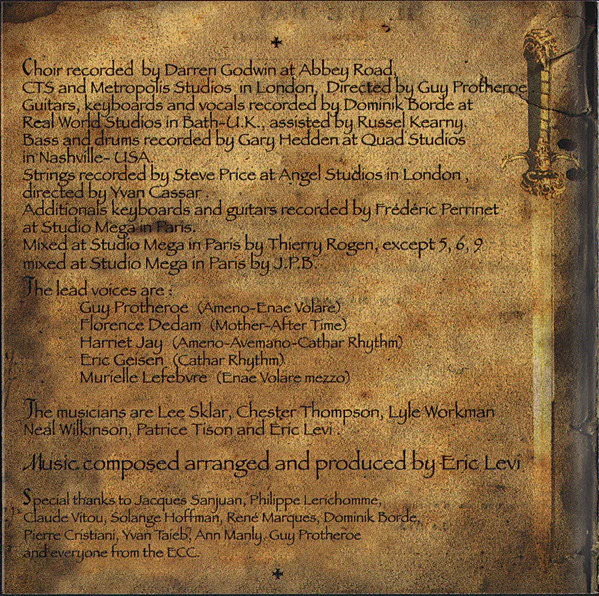 Choir recorded by Darren Godwin at Abbey Road,
CTS and Metropolis Studios in London, Directed by Guy Protheroe
Guitars, keyboards and vocals recorded by Dominik Borde at
Real World Studios in Bath-U.K., assisted by Russel Kearny.
Bass and drums recorded by Gary Hedden at Quad Studios
in Nashville- USA.
Strings recorded by Steve Price at Angel Studios in London ,
directed by Yvan Cassar .
Additionals keyboards and guitars recorded by Frédéric Perrinet
at Studio Mega in Paris.
Mixed at Studio Mega in Paris by Thierry Rogen, except 5, 6, 9
mixed at Studio Mega in Paris by J.P.B.
The lead voices are :
Guy Protheroe (Ameno-Enae Volare)
Florence Dedam (Mother-After Time)
Harriet Jay (Ameno-Avemano-Cathar Rhythm)
Eric Geisen (Cathar Rhythm)
Murielle Lefebvre (Enae Volare mezzo)
The musicians are Lee Sklar, Chester Thompson, Lyle Workman
Neal Wilkinson, Patrice Tison and Eric Levi .
Music composed arranged and produced by Eric Levi
Special thanks to Jacques Sanjuan, Philippe Lerichomme,
Claude Vitou, Solange Hoffman, René Marques, Dominik Borde,
Pierre Cristiani, Yvan Taïeb, Ann Manly, Guy Protheroe
and everyone from the ECC.